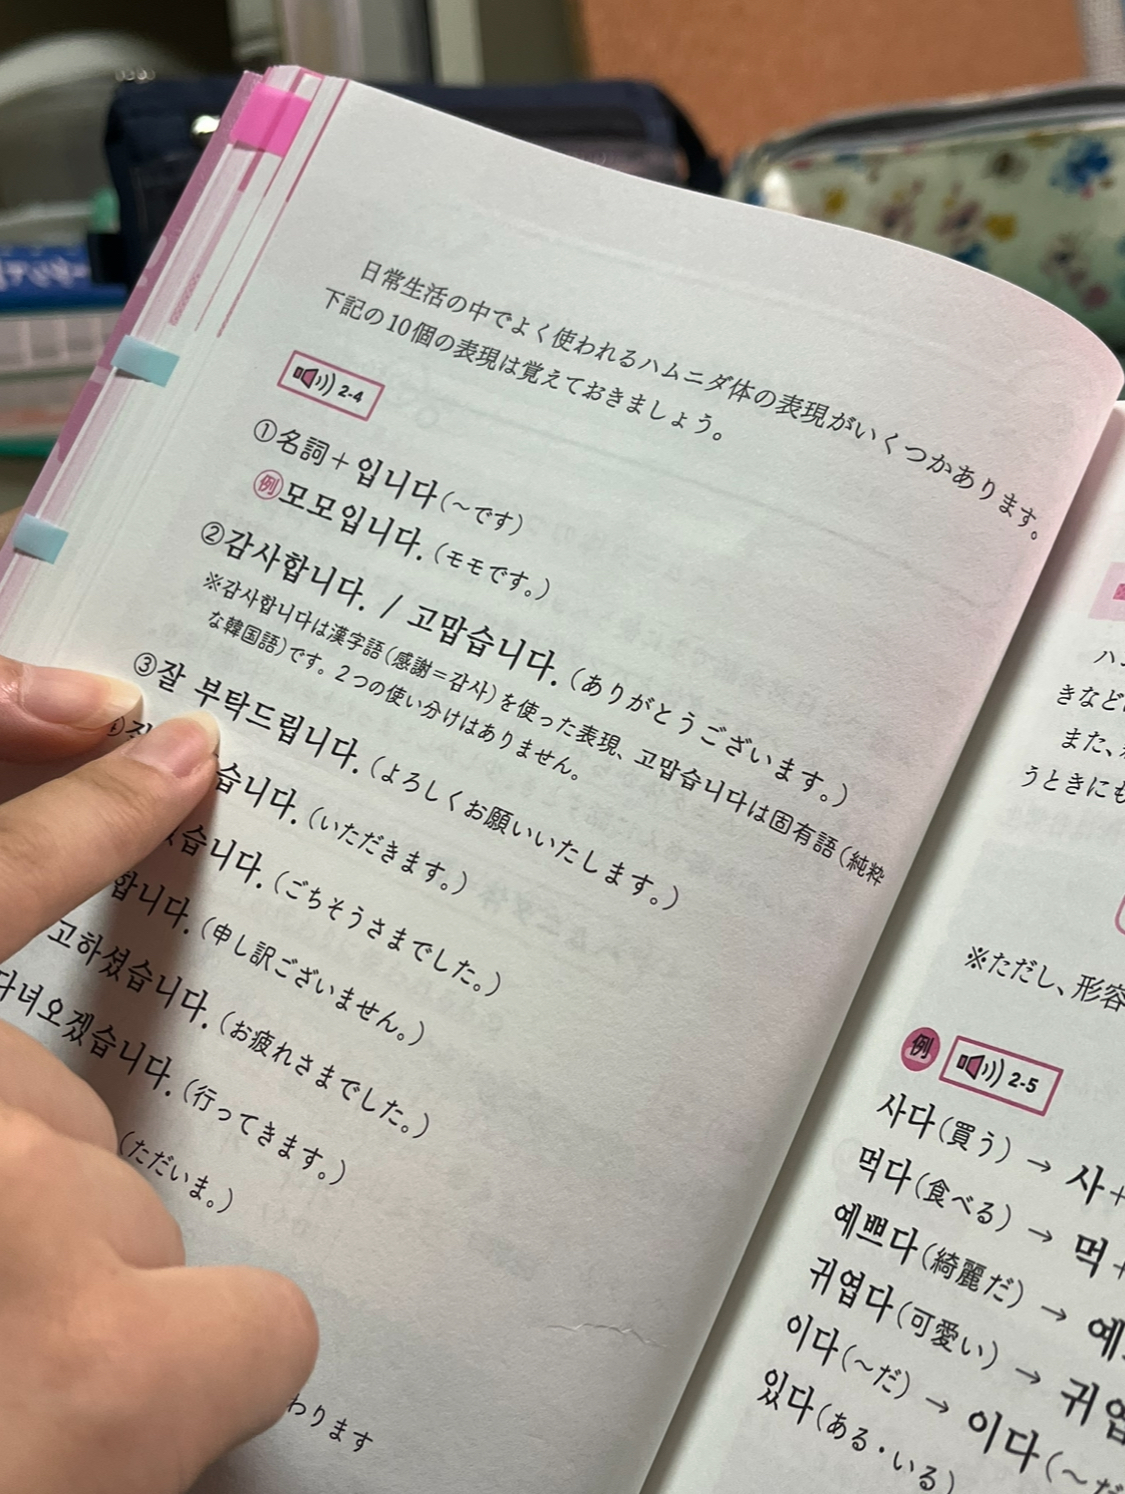 日常生活の中でよく使われるハムニダ体の表現がいくつかあります。
下記の10個の表現は覚えておきましょう。
2-4
①名詞＋입니다(～です)
例 모모입니다. (モモです。)
②감사합니다. / 고맙습니다. (ありがとうございます。)
※감사합니다は漢字語(感謝＝감사)を使った表現、고맙습니다は固有語(純粋
な韓国語)です。2つの使い分けはありません。
③잘 부탁드립니다. (よろしくお願いいたします。)
습니다. (いただきます。)
습니다. (ごちそうさまでした。)
합니다. (申し訳ございません。)
고하셨습니다. (お疲れさまでした。)
다녀오겠습니다. (行ってきます。)
(ただいま。)
わります
ハ
きなど
また、
うときにも
※ただし、形容
例 2-5
사다(買う) → 사＋
먹다(食べる) → 먹＋
예쁘다(綺麗だ) → 예
귀엽다(可愛い) → 귀엽
이다(～だ) → 이다(～だ
있다(ある・いる)